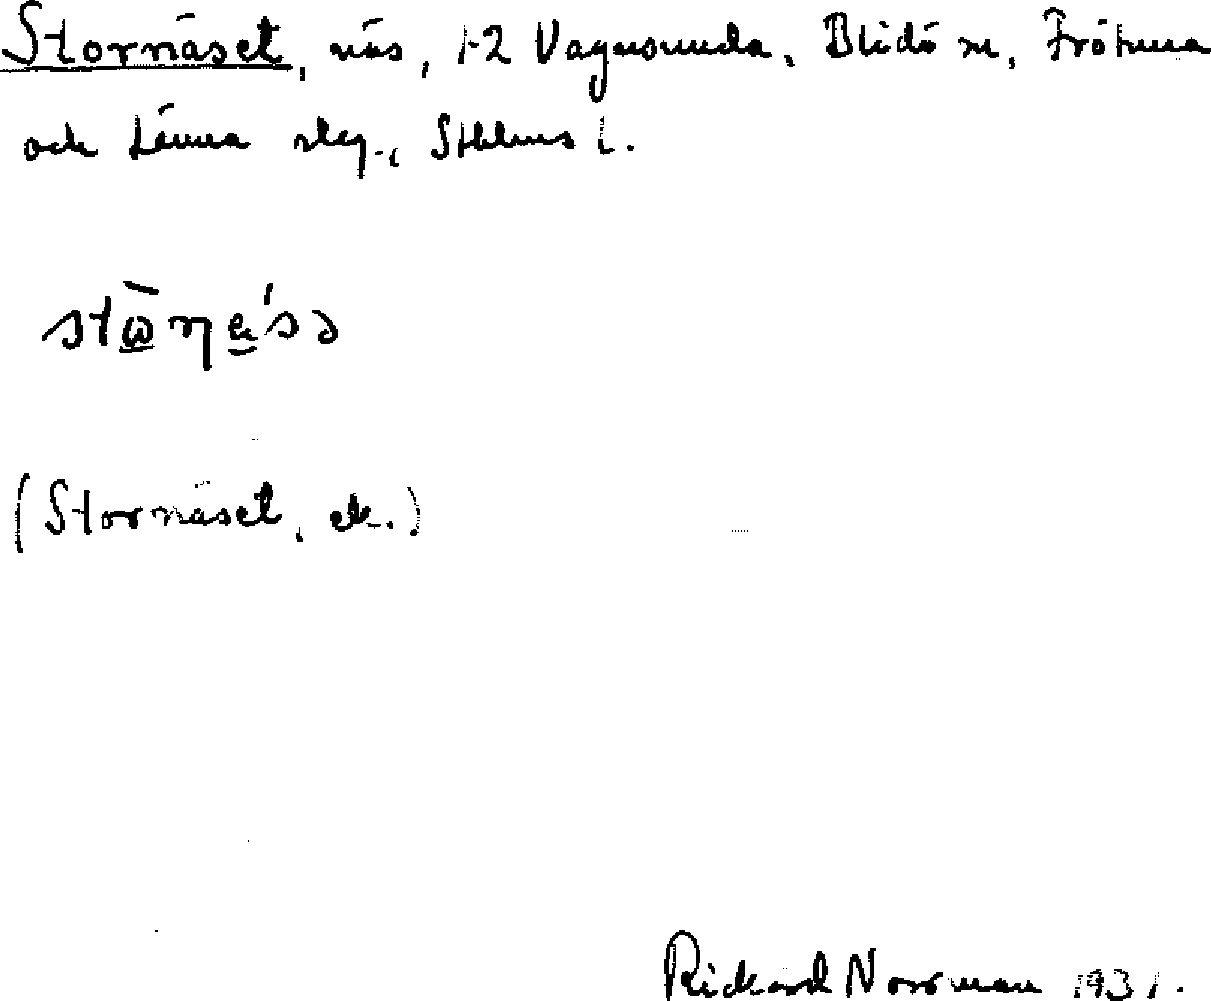 Stornäset, näs, 1-2 Vagnsunda, Blidö sn, Frötuna
och Länna slg., Sthlms l.
(Stornäset, ek.)
Rickard Norrman 1931.